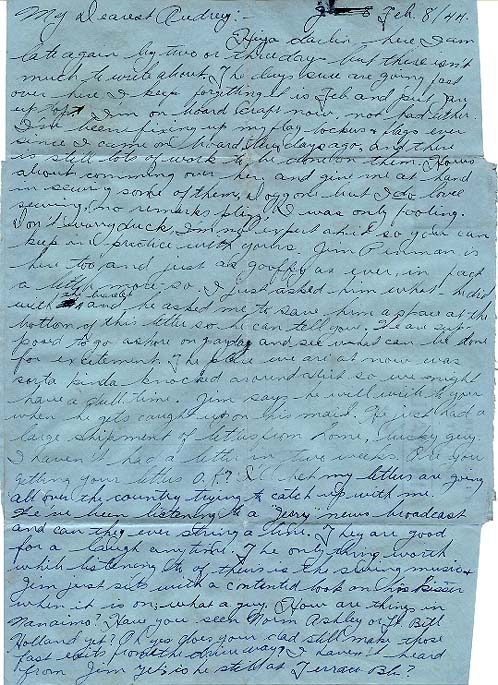 My Dearest Audrey:- Feb. 8/44.
Hiya darlin here I am
late again by two or three days but there isn't
much to write about. The days sure are going fast
over here I keep forgetting it is Feb and put Jan
up top. I'm on board craft now, not bad either
I've been fixing up my flag lockers & flags ever
since I came on board days ago, and there
is still lots of work to be done on them. Hows
about comming over her and give me at hand
in sewing some of them, Doggone but I do love
sewing, no remarks plez, I was only fooling.
Don't worry duck I'm my expert at it so you can
keep in practice with yours. Jim Penman is
here too and just as goofy as ever, in fact
a little more so. I just asked him what he did
with and he asked me to save him a space at the
bottom of this letter so he can tell you. We are sup-
posed to go ashore on payday and see what can be done
for excitement. The place we are at now was
sorta kinda knocked around abit so we might
have a dull time. Jim says he will write to you
when he gets caught up on his mail. He just had a
large shipment of letters from home, lucky guy.
I haven't had a letter in two weeks. Are you
getting your letters O.K.? I bet my letters are going
all over the country trying to catch up with me.
We've been listening to a "Jerry" news broadcast
and can they ever string a line. They are good
for a laugh anytime. The only thing worth
while listening to of theirs is the swing music &
Jim just sits with a contented look on his kisser
when it is on; what a guy. How are things in
Nanaimo? Have you seen Norm Ashley or Bill
Holland yet? Oh yes does your dad still make those
fast exits from the driveway? I haven't heard
from Jim yet, is he still at Terrace B.C.?